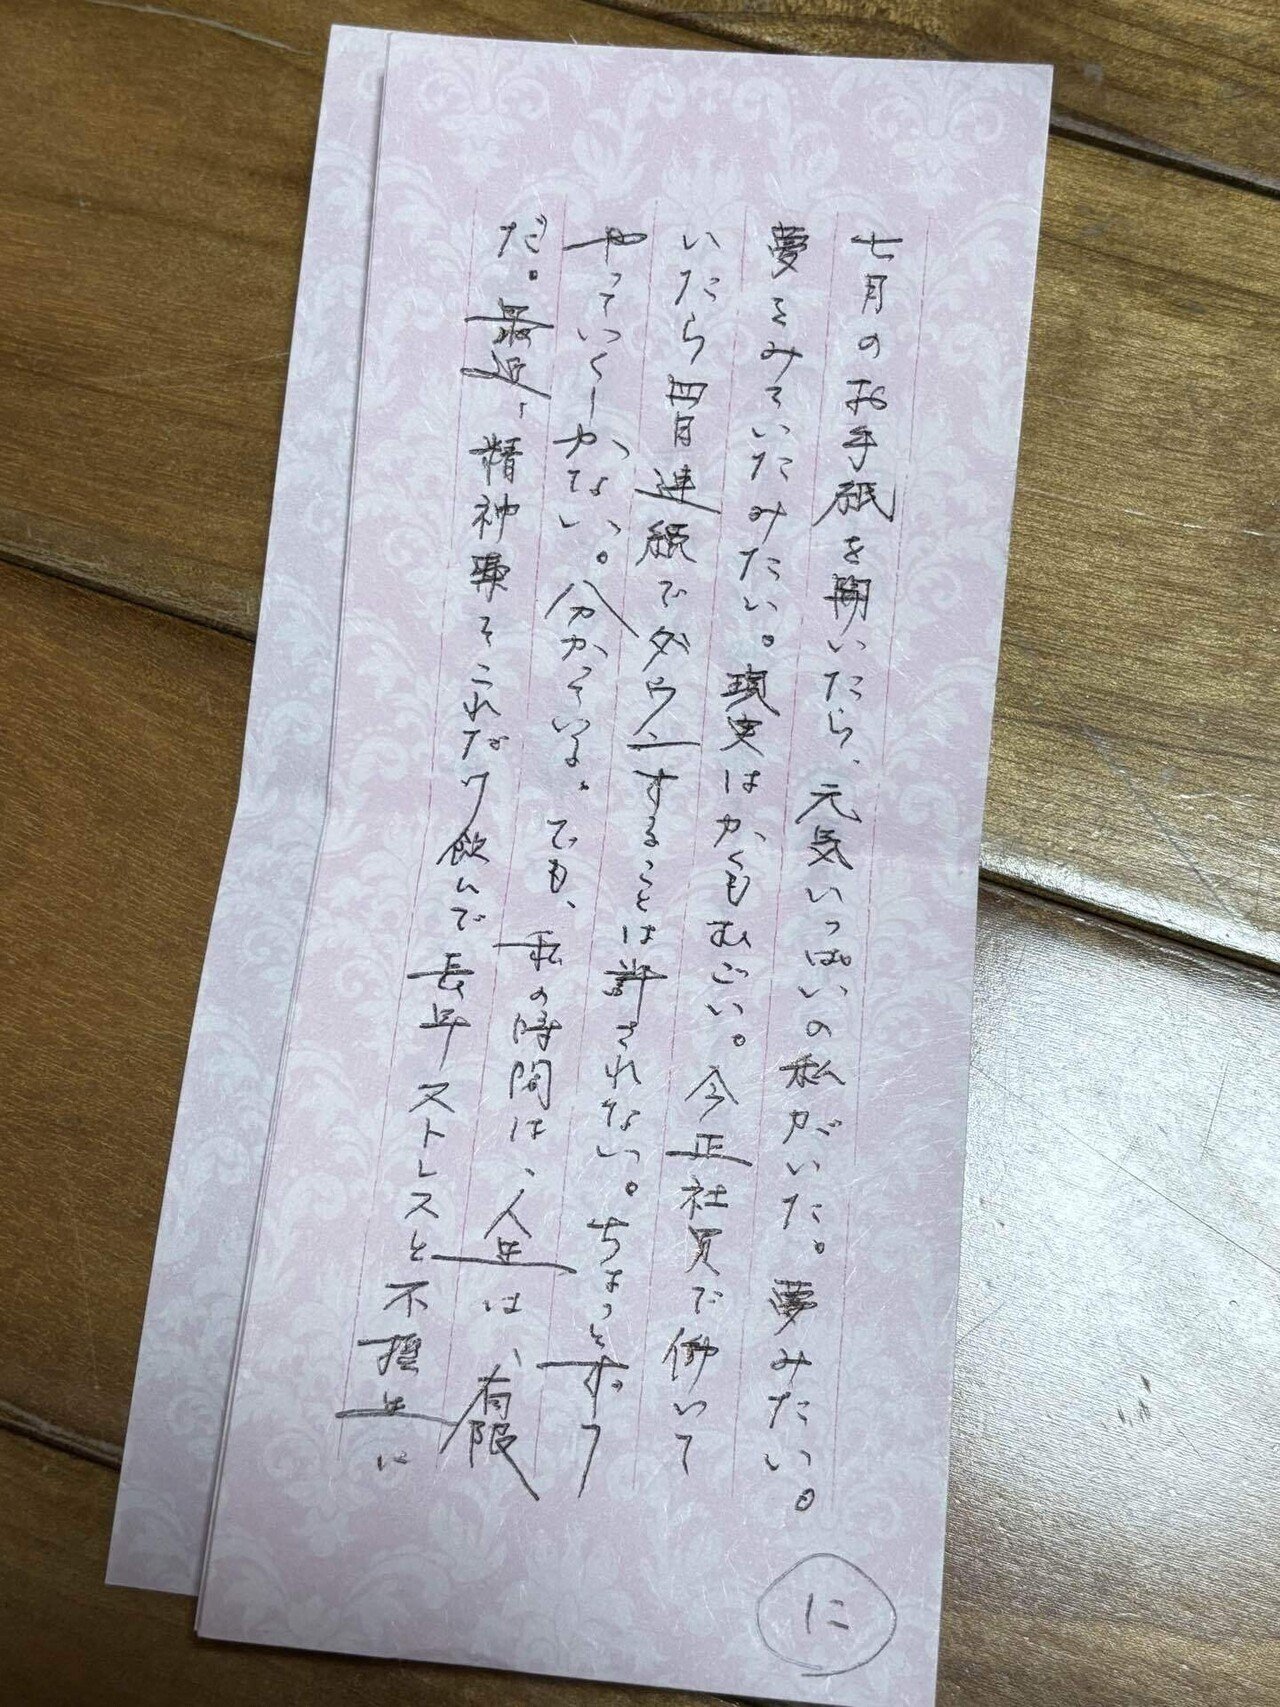 七月のお手紙を開いたら、元気いっぱいの私がいた。夢みたい。
夢をみていたみたい。現実はかくもむごい。今正社員で働いて
いたら四日連続でダウンすることは許されない。ちょっとずつ
やっていくしかない。分かっている。でも、私の時間は、人生は、有限
だ。最近、精神薬をこれだけ飲んで長年ストレスと不摂生に
に